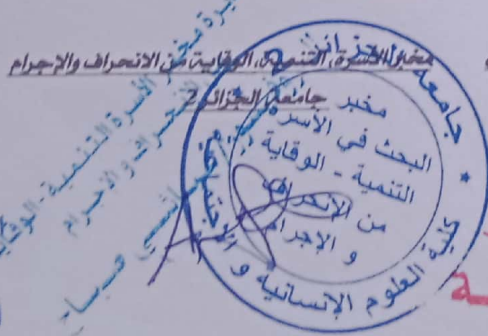 مخبر الأسرة، التنمية، الوقاية من الانحراف والإجرام
جامعة الجزائر 2
جامعة الجزائر
مخبر
البحث في الأسرة
التنمية - الوقاية
من الانحراف
و الإجرام
كلية العلوم الإنسانية و الاجتماعية
مخبر الأسرة التنمية - الوقاية
الانحراف و الاجرام